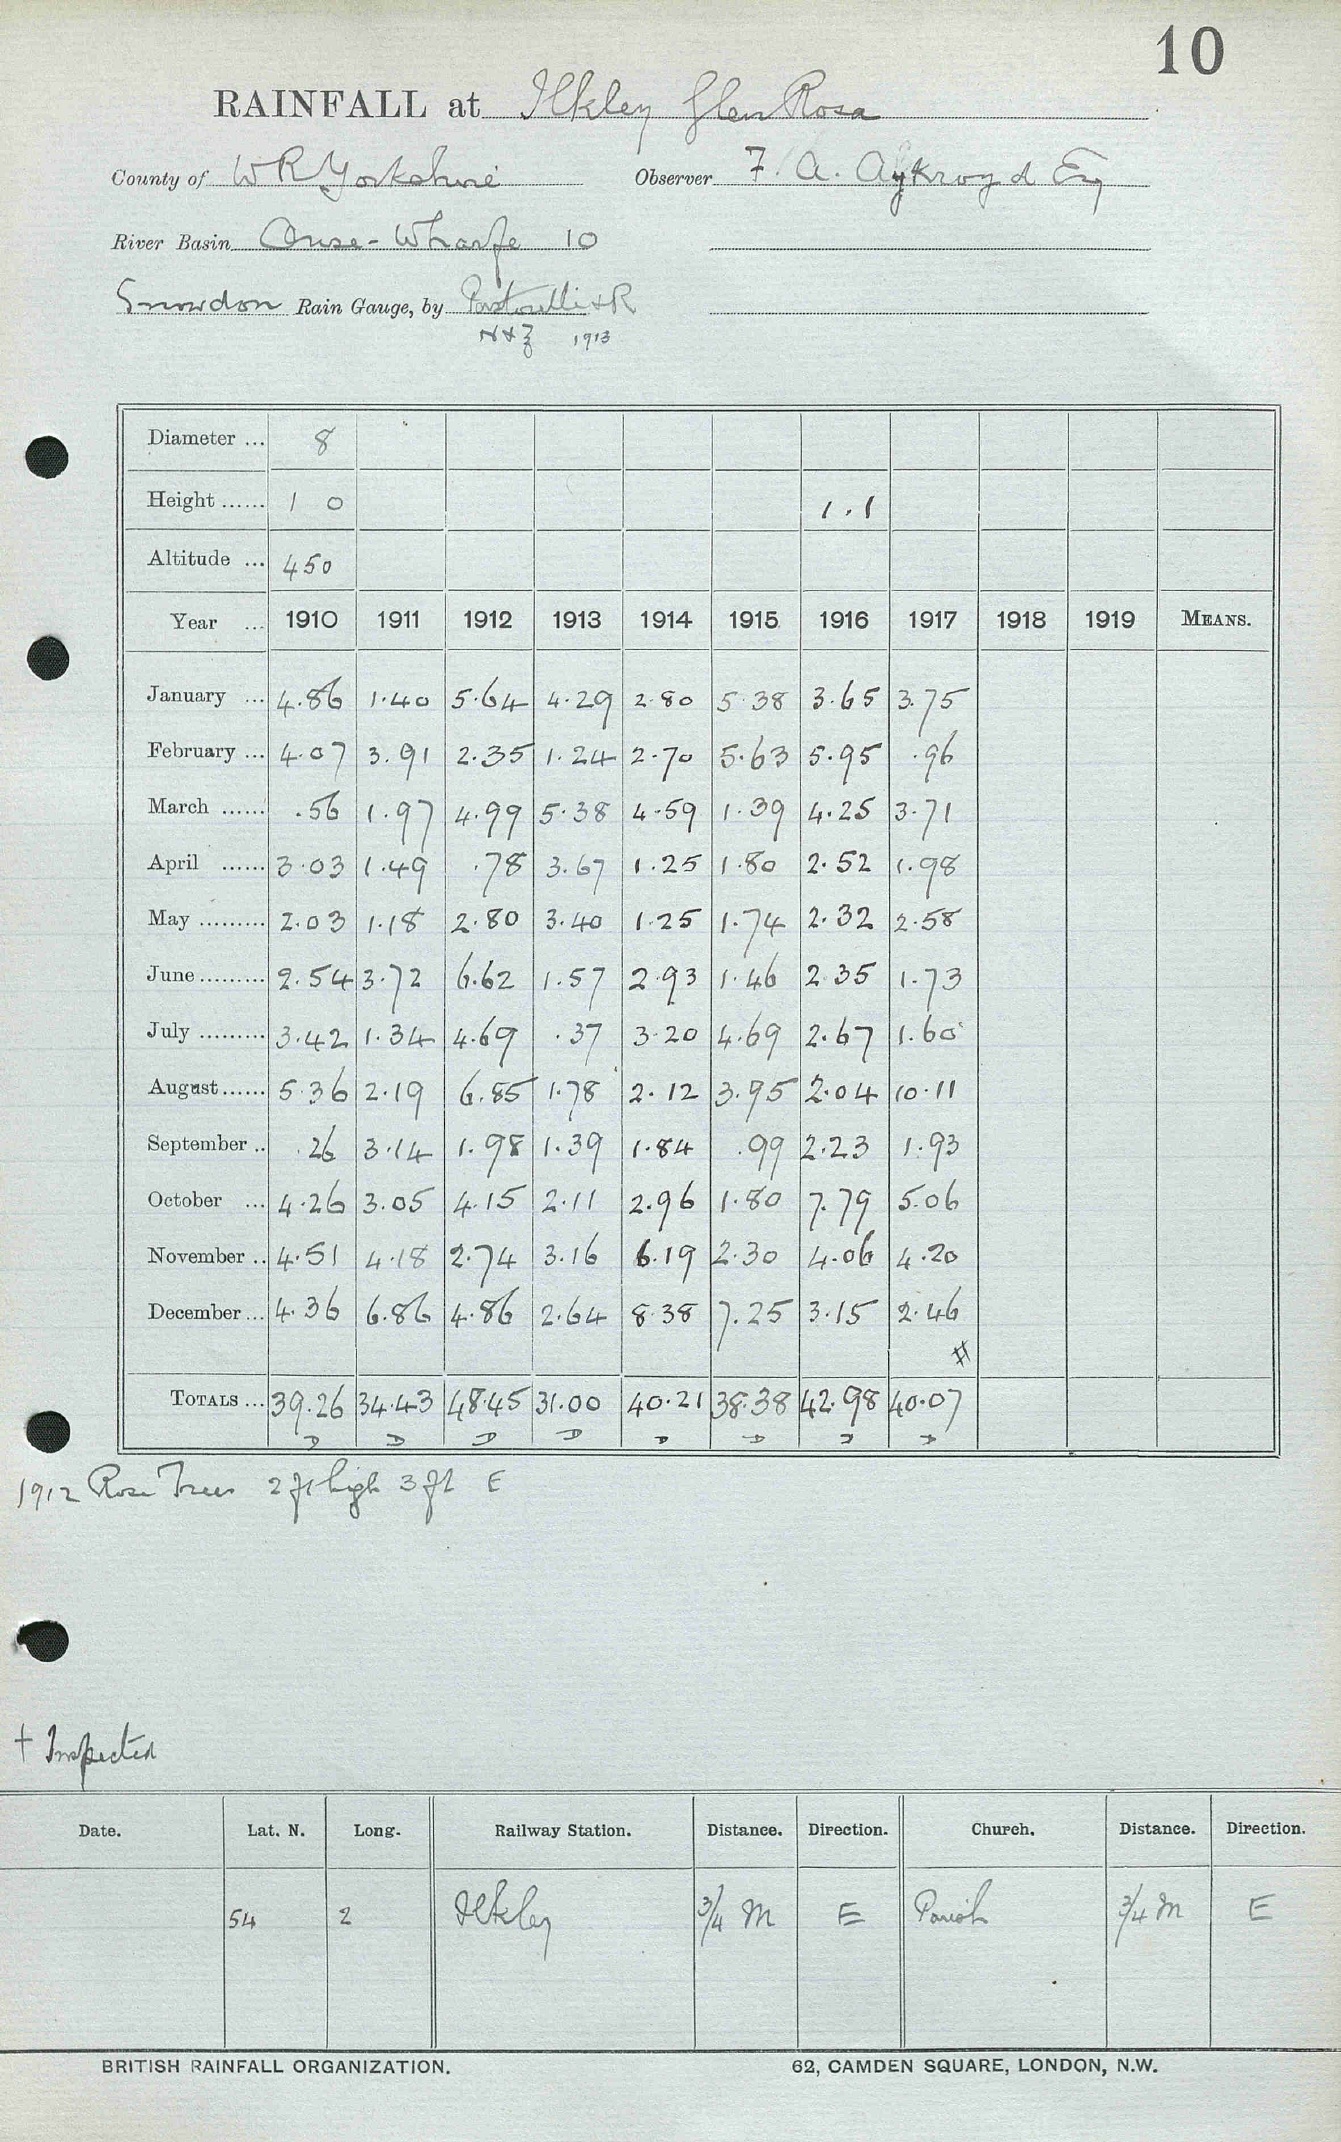 10
RAINFALL at Ilkley Glen Rosa
County of W R Yorkshire Observer F. A. Aykroyd Esq
River Basin Ouse - Wharfe 10
Snowdon Rain Gauge, by Pastorelli & R
N & Z 1913
Diameter ... 8
Height ...... 1 0 1.1
Altitude ... 450
Year ... 1910 1911 1912 1913 1914 1915 1916 1917 1918 1919 MEANS.
January ... 4.86 1.40 5.64 4.29 2.80 5.38 3.65 3.75
February ... 4.07 3.91 2.35 1.24 2.70 5.63 5.95 .96
March ...... .56 1.97 4.99 5.38 4.59 1.39 4.25 3.71
April ...... 3.03 1.49 .78 3.67 1.25 1.80 2.52 1.98
May ......... 2.03 1.18 2.80 3.40 1.25 1.74 2.32 2.58
June ......... 2.54 3.72 6.62 1.57 2.93 1.46 2.35 1.73
July ......... 3.42 1.34 4.69 .37 3.20 4.69 2.67 1.60
August ...... 5.36 2.19 6.85 1.78 2.12 3.95 2.04 10.11
September .. .26 3.14 1.98 1.39 1.84 .99 2.23 1.93
October ... 4.26 3.05 4.15 2.11 2.96 1.80 7.79 5.06
November .. 4.51 4.18 2.74 3.16 6.19 2.30 4.06 4.20
December ... 4.36 6.86 4.86 2.64 8.38 7.25 3.15 2.46
#
TOTALS ... 39.26 34.43 48.45 31.00 40.21 38.38 42.98 40.07
1912 Rose Trees 2 ft high 3 ft E
† Inspected
Date. Lat. N. Long. Railway Station. Distance. Direction. Church. Distance. Direction.
54 2 Ilkley 3/4 M E Parish 3/4 M E
BRITISH RAINFALL ORGANIZATION. 62, CAMDEN SQUARE, LONDON, N.W.